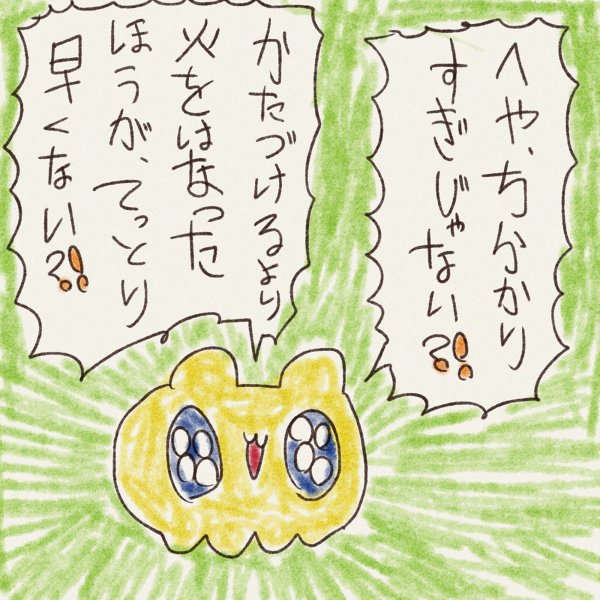 へや、ちらかり
すぎじゃない?!!
かたづけるより
火をはなった
ほうが、てっとり
早くない?!!